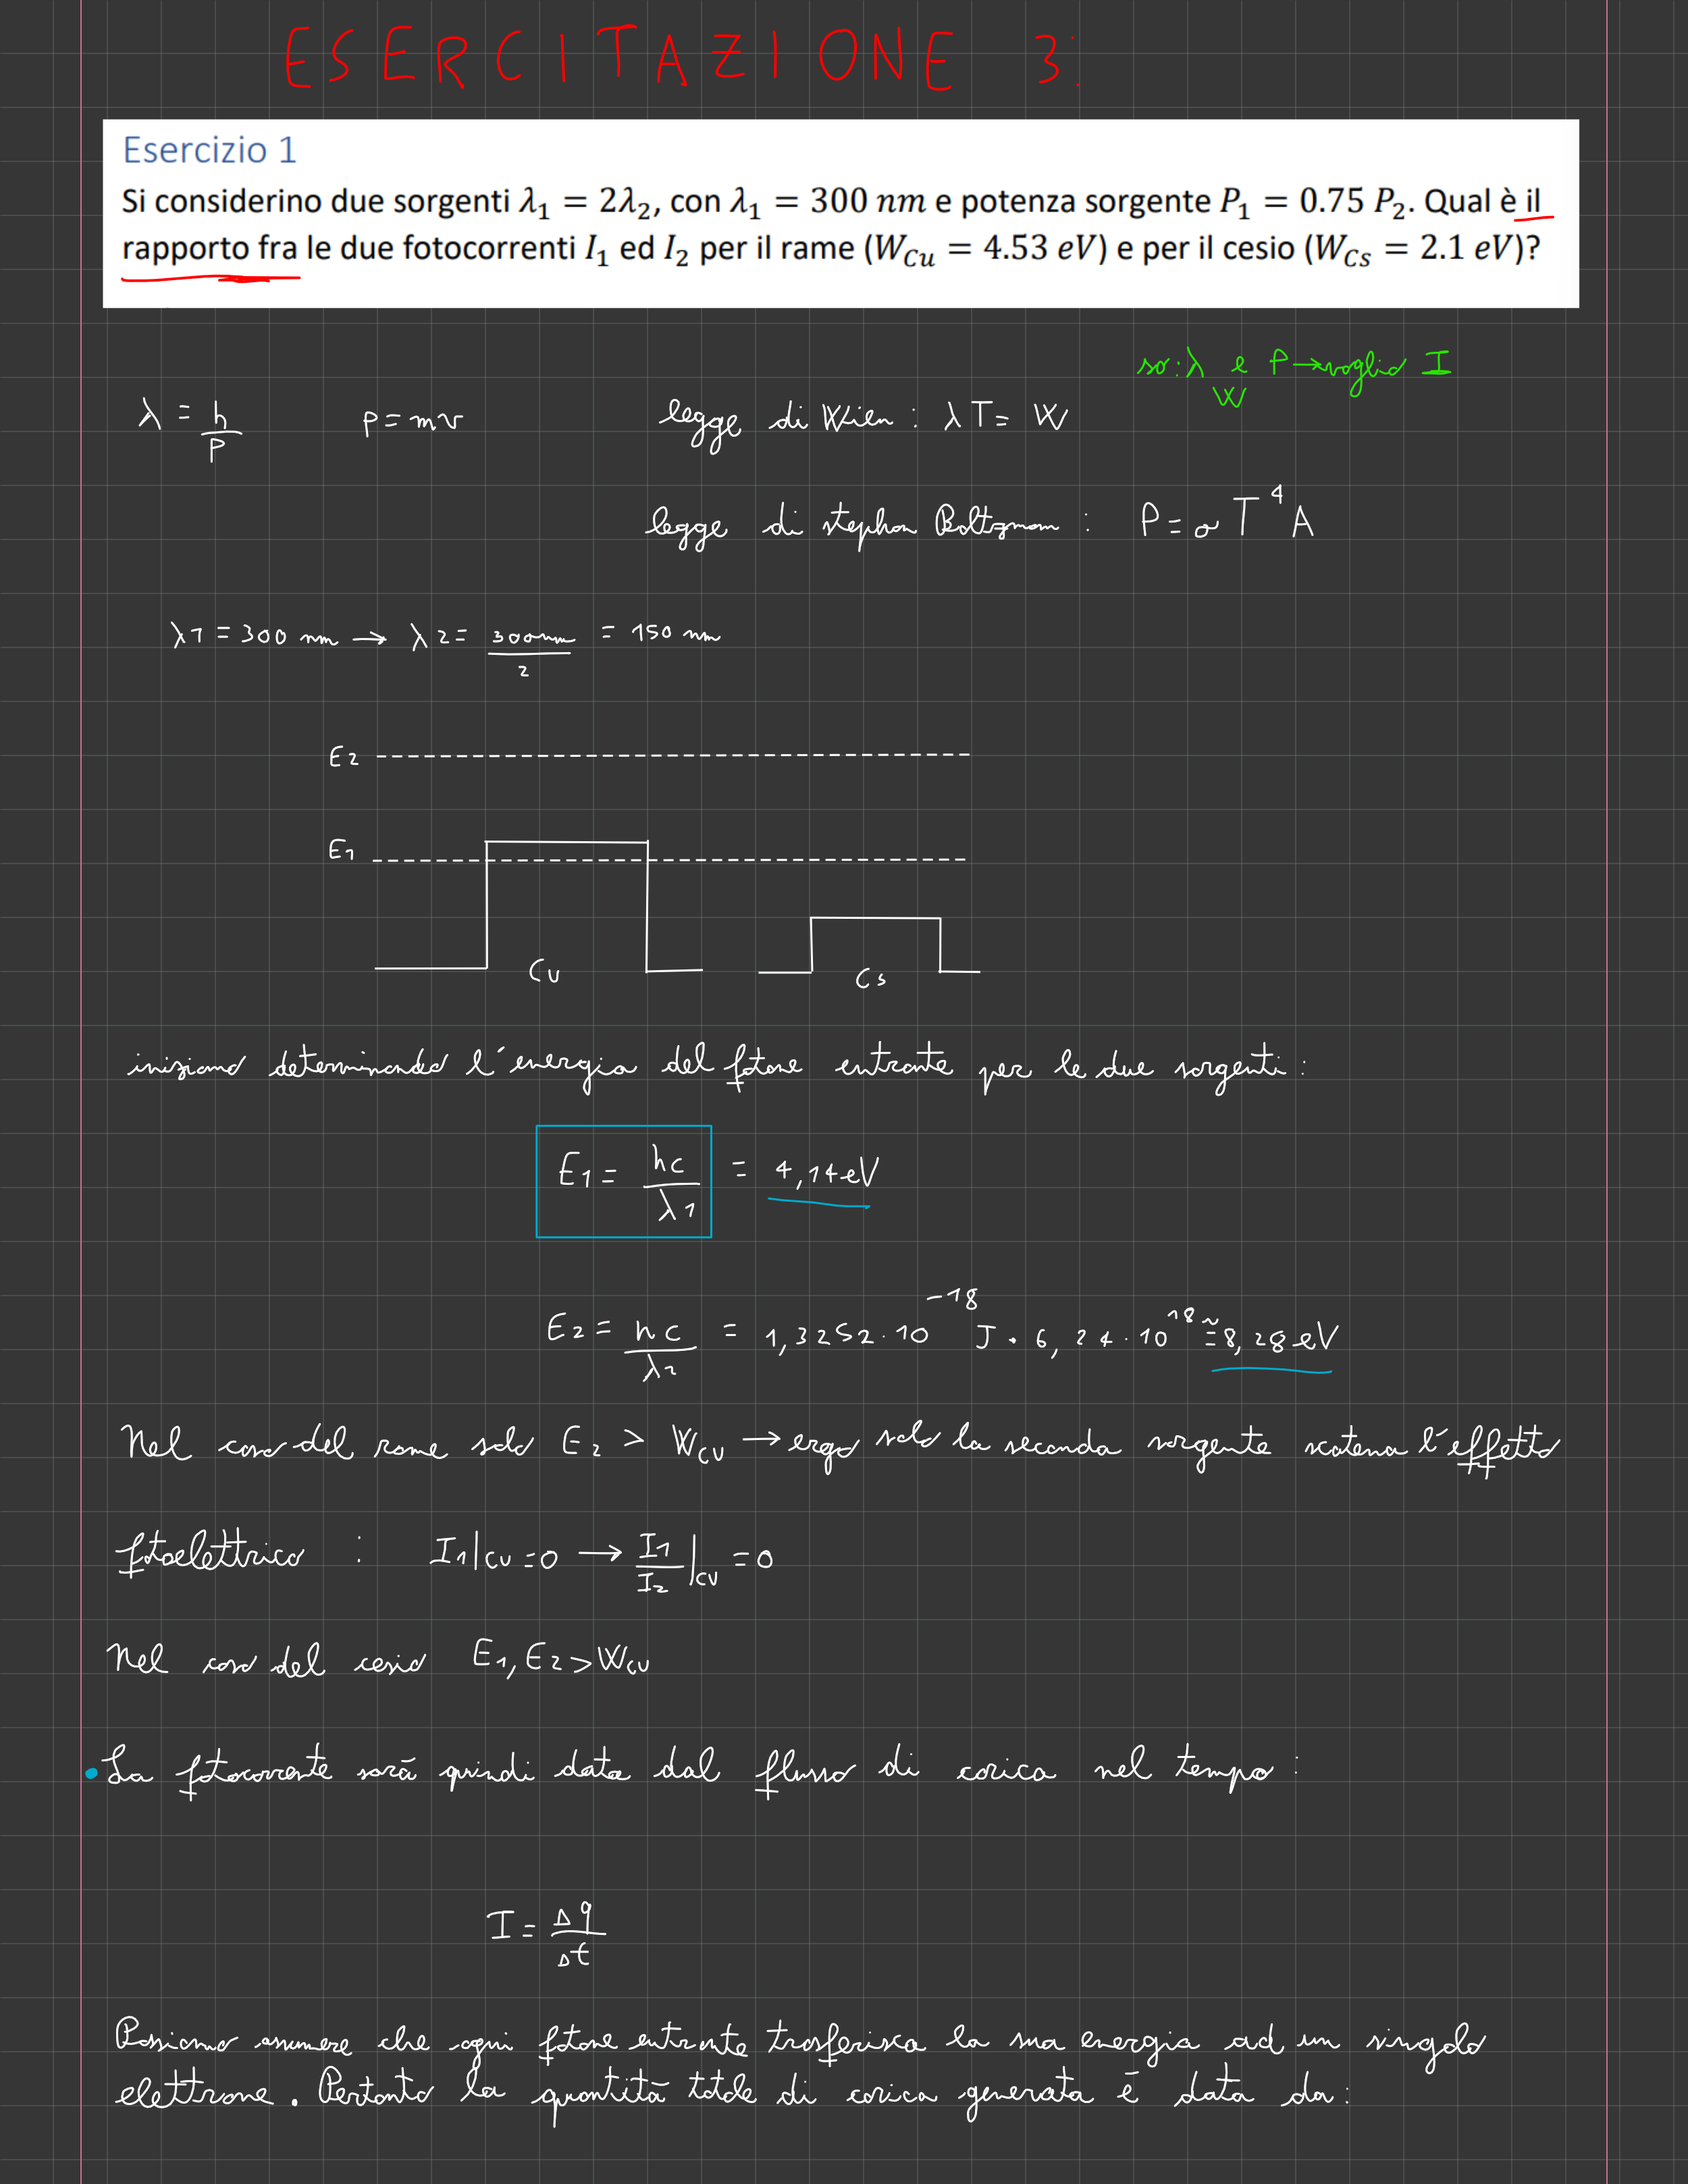 ESERCITAZIONE 3:
Esercizio 1
Si considerino due sorgenti λ₁ = 2λ₂, con λ₁ = 300 nm e potenza sorgente P₁ = 0.75 P₂. Qual è il
rapporto fra le due fotocorrenti I₁ ed I₂ per il rame (W_Cu = 4.53 eV) e per il cesio (W_Cs = 2.1 eV)?
so: λ e P → voglio I
W
λ = h/P    p = mv    legge di Wien : λT = W
legge di stephan Boltzmam : P = σT⁴A
λ1 = 300 nm → λ2 = 300nm/2 = 150 nm
E2
E1
Cu    Cs
iniziamo determinando l'energia del fotone entrante per le due sorgenti :
E1 = hc/λ1 = 4,14 eV
E2 = hc/λ2 = 1,3252·10⁻¹⁸ J · 6,24·10¹⁸ ≅ 8,28 eV
Nel caso del rame solo E₂ > W_CU → ergo solo la seconda sorgente scatena l'effetto
fotoelettrico : I1|CU = 0 → I1/I2|CU = 0
Nel caso del cesio E1, E2 > W_CU
• La fotocorrente sarà quindi data dal flusso di carica nel tempo :
I = Δq/Δt
Possiamo assumere che ogni fotone entrante trasferisca la sua energia ad un singolo
elettrone. Pertanto la quantità totale di carica generata è data da :